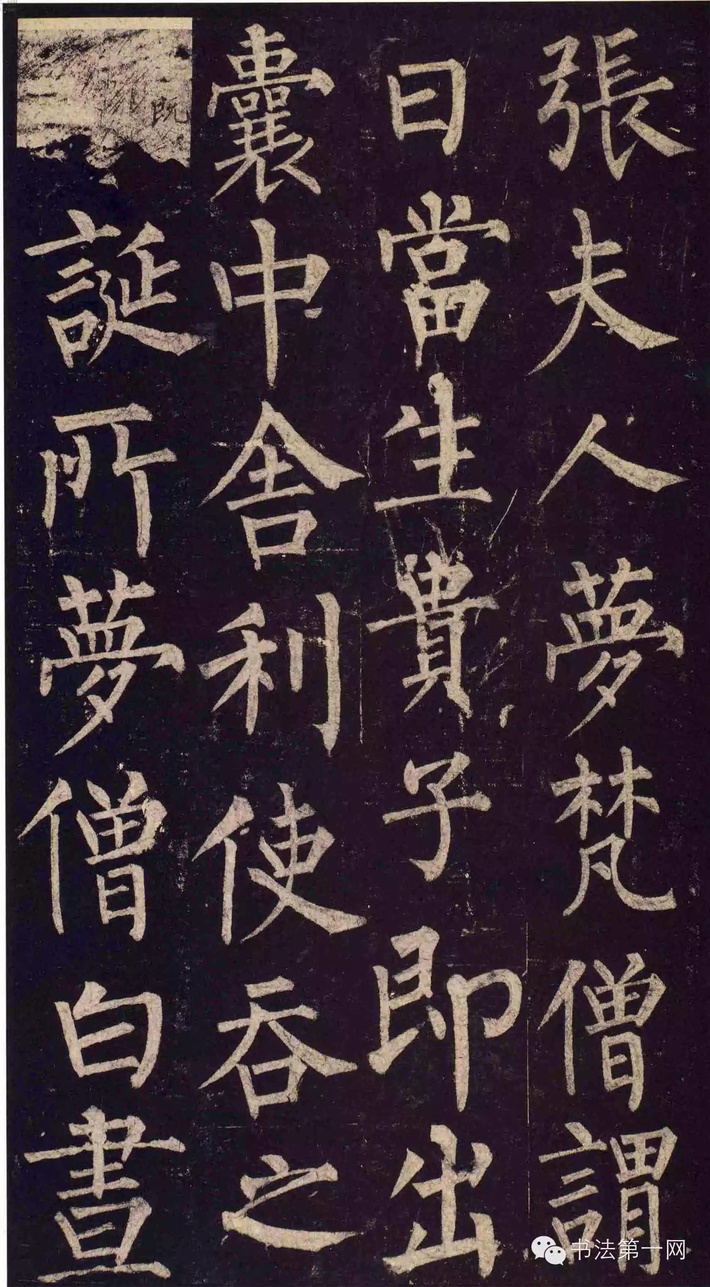 張夫人夢梵僧謂
曰當生貴子即出
囊中舎利使吞之
既誕所夢僧白晝
书法第一网